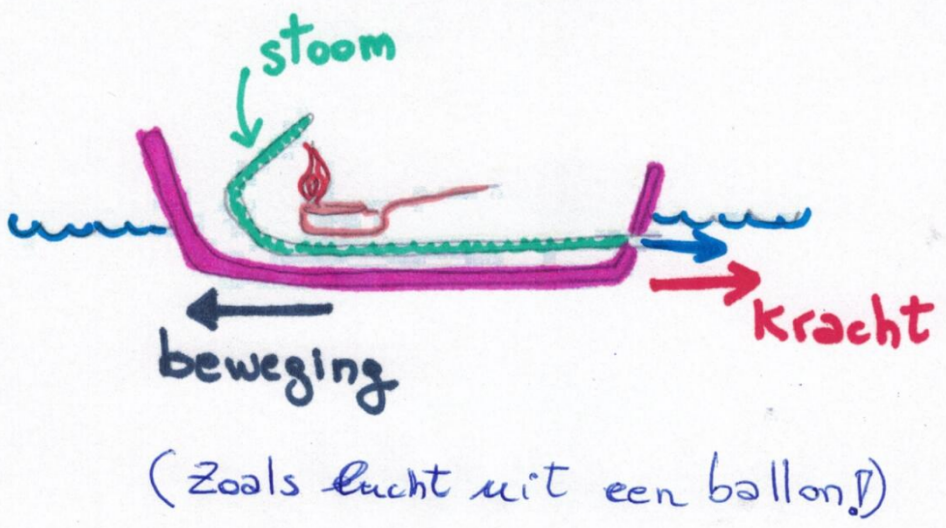 stoom
kracht
beweging
(zoals lucht uit een ballon!)